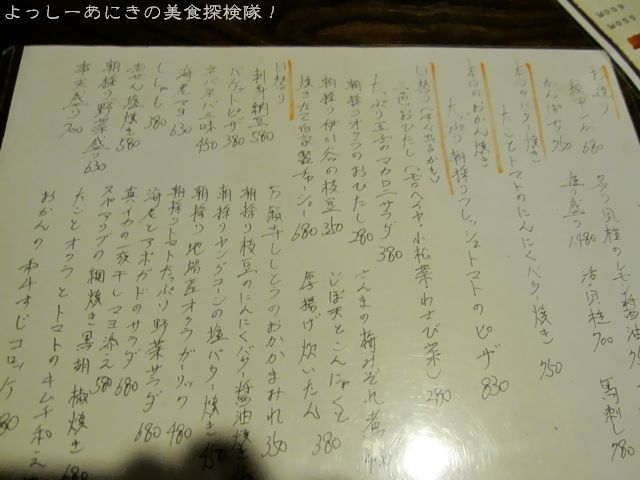 よっしーあにきの美食探検隊！
お造り
680
かんぱち 750
造り盛り 1480
活・貝柱 700
馬刺し 980
本日のバター焼き
たことトマトのにんにくバター焼き 750
本日のおかん焼き
たっぷり朝採りフレッシュトマトのピザ 830
日替り(すぐ出るかも)
三色おひたし(モロヘイヤ・小松菜・わさび菜) 280
たっぷり玉子のマカロニサラダ 380
朝採りオクラのおひたし 280
さんまの梅みぞれ煮
朝採り伊川谷の枝豆 350
じゃこ天とこんにゃくと
厚揚げ炊いたん 380
焼きたて自家製チャーシュー 680
日替り
刺身納豆 580
万願寺ししとうのおかかまみれ 350
バゲットピザ 380
朝採り枝豆のにんにくバター醤油焼き
ネバネバ三昧 450
朝採りヤングコーンの塩バター焼き 450
海老マヨ 630
朝採り地場産オクラガーリック 480
ししゃも 380
朝採りトマトたっぷり野菜サラダ 680
赤せん塩焼き 580
海老とアボガドのサラダ 680
朝採り野菜盛り 630
真イカの一夜干しマヨ添え 580
串天盛り 700
スペアリブの網焼き黒胡椒焼き 680
たことオクラとトマトのキムチ和え
おかんの和牛すじコロッケ